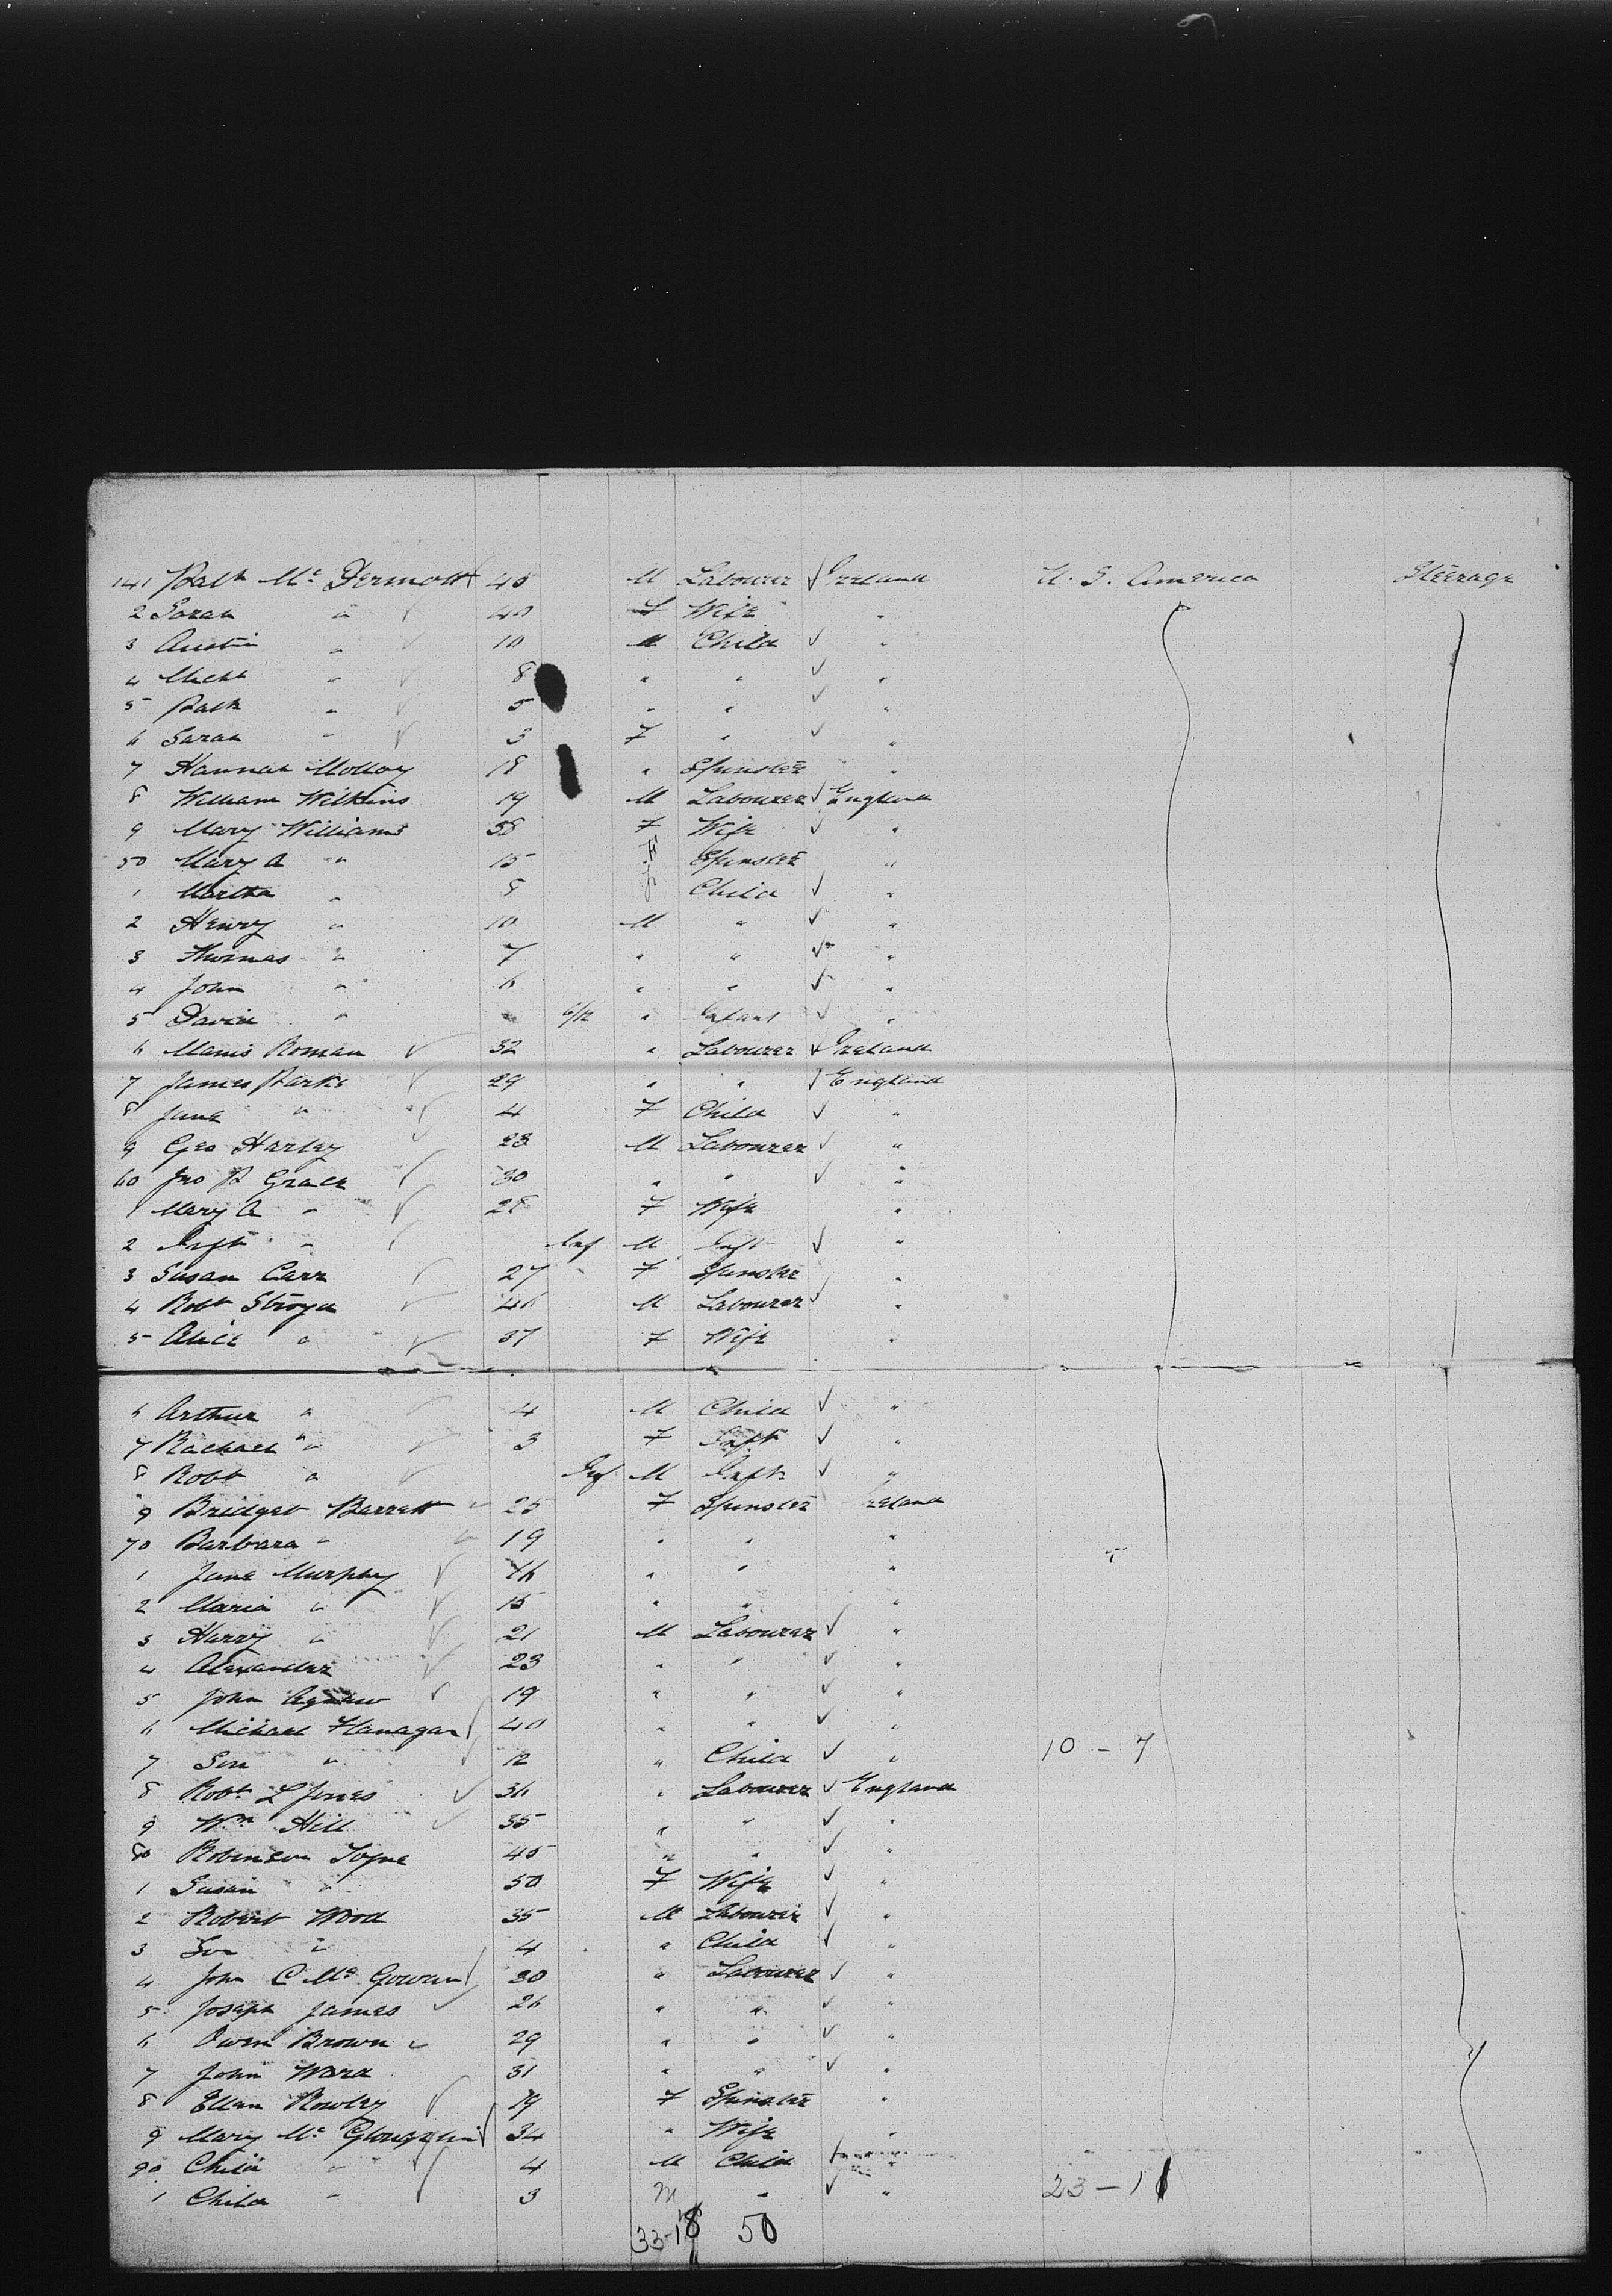 141 Patk Mc Dermott 45 M Labourer √ Ireland U. S. America Steerage
2 Sarah " √ 40 F Wife "
3 Austin " √ 10 M Child √ "
4 Michl " √ 8 " " √ "
5 Patk " √ 5 " " √ "
6 Sarah " √ 3 F " √ "
7 Hannah Molloy 18 " Spinster "
8 William Wilkins 19 M Labourer √ England
9 Mary Williams 38 F Wife √ "
50 Mary A " 15 F Spinster "
1 Martha " 8 Child √ "
2 Henry " 10 M " √ "
3 Thomas " 7 " " √ "
4 John " 6 " " √ "
5 David " 6/12 " Infant √ "
6 Manis Roman √ 32 " Labourer √ Ireland
7 James Parks √ 29 " " √ England
8 Jane " √ 4 F Child √ "
9 Geo Harley √ 23 M Labourer √ "
60 Jno P Grace √ 30 " " √ "
1 Mary A " √ 28 F Wife "
2 Inft " √ Inf M Inft √ "
3 Susan Carr √ 27 F Spinster "
4 Robt √ 46 M Labourer √ "
5 Alice " √ 37 F Wife "
6 Arthur " √ 4 M Child √ "
7 Rachael " √ 3 F Inft √ "
8 Robt " √ Inf M Inft √ "
9 Bridget Barrett √ 25 F Spinster Ireland
70 Barbara " √ 19 " " "
1 Jane Murphy √ 16 " " "
2 Maria " √ 15 " " "
3 Harry " √ 21 M Labourer √ "
4 Alexander √ 23 " " √ "
5 John Agnew √ 19 " " √ "
6 Michael Flanagan √ 40 " " √ "
7 Son " √ 12 " Child √ " 10 - 7
8 Robt L Jones √ 36 " Labourer √ England
9 Wm Hill √ 35 " " √ "
80 Robinson 45 " " √ "
1 Susan " 50 F Wife √ "
2 Robert Wood 35 M Labourer √ "
3 Son " 4 " Child √ "
4 John C Mc Gowan √ 30 " Labourer √ "
5 Joseph James √ 26 " " √ "
6 Owen Brown √ 29 " " √ "
7 John Ward 31 " " √ "
8 Ellen Rowley √ 19 F Spinster "
9 Mary Mc √ 34 " Wife "
90 Child " √ 4 M Child "
1 Child " √ 3 M " √ " 23 - 11
33-18 50